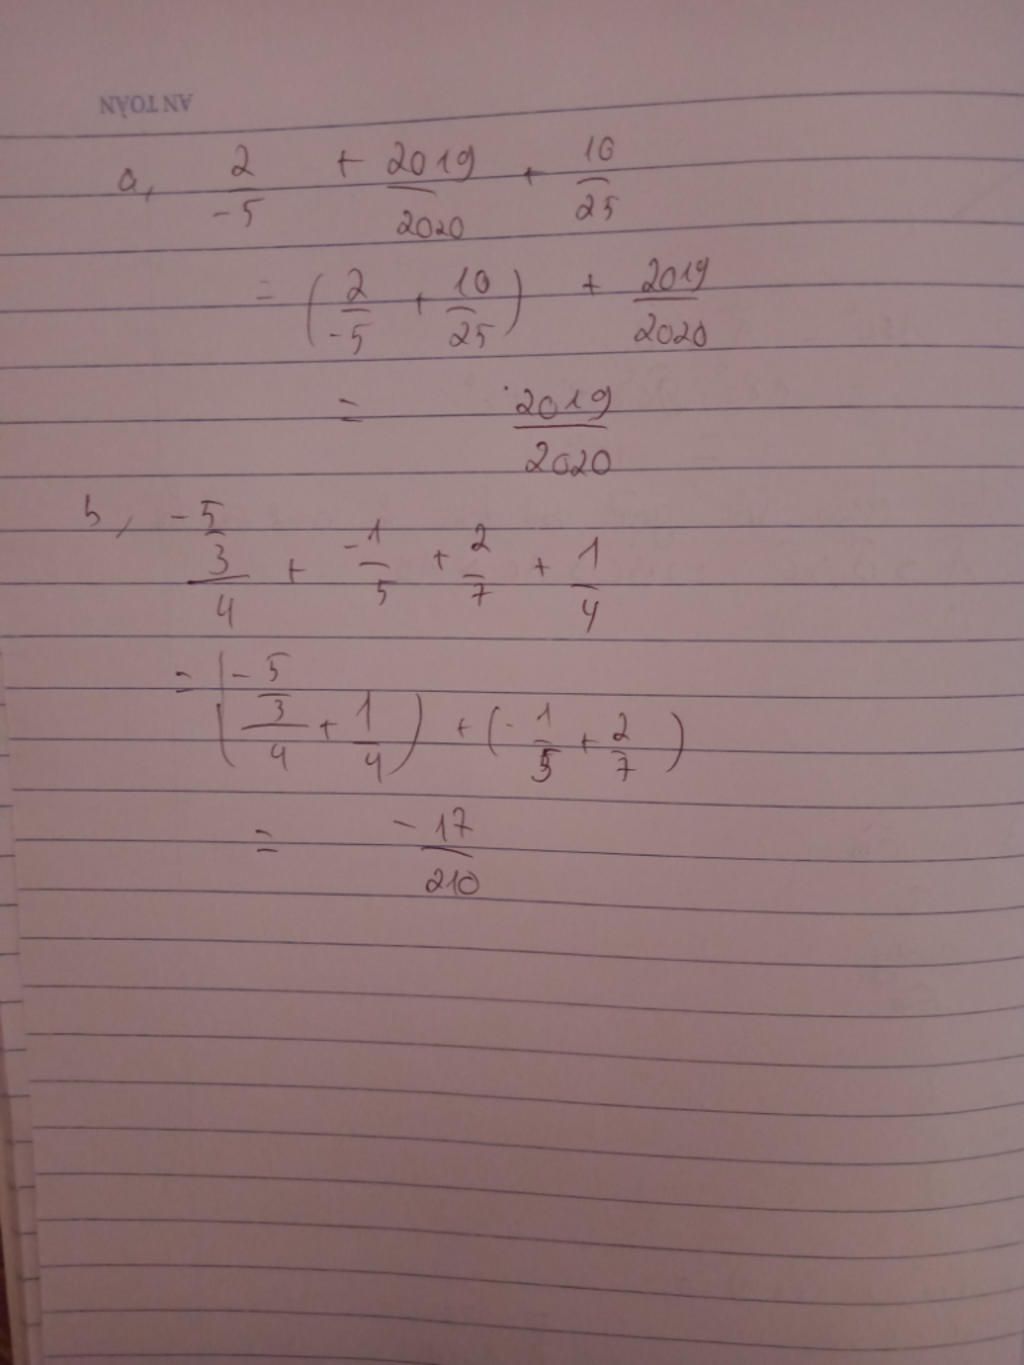 AN TOÀN
a, 2/-5 + 2019/2020 + 10/25
= (2/-5 + 10/25) + 2019/2020
= 2019/2020
b, (-5/3)/4 + -1/5 + 2/7 + 1/4
= ((-5/3)/4 + 1/4) + (-1/5 + 2/7)
= -17/210